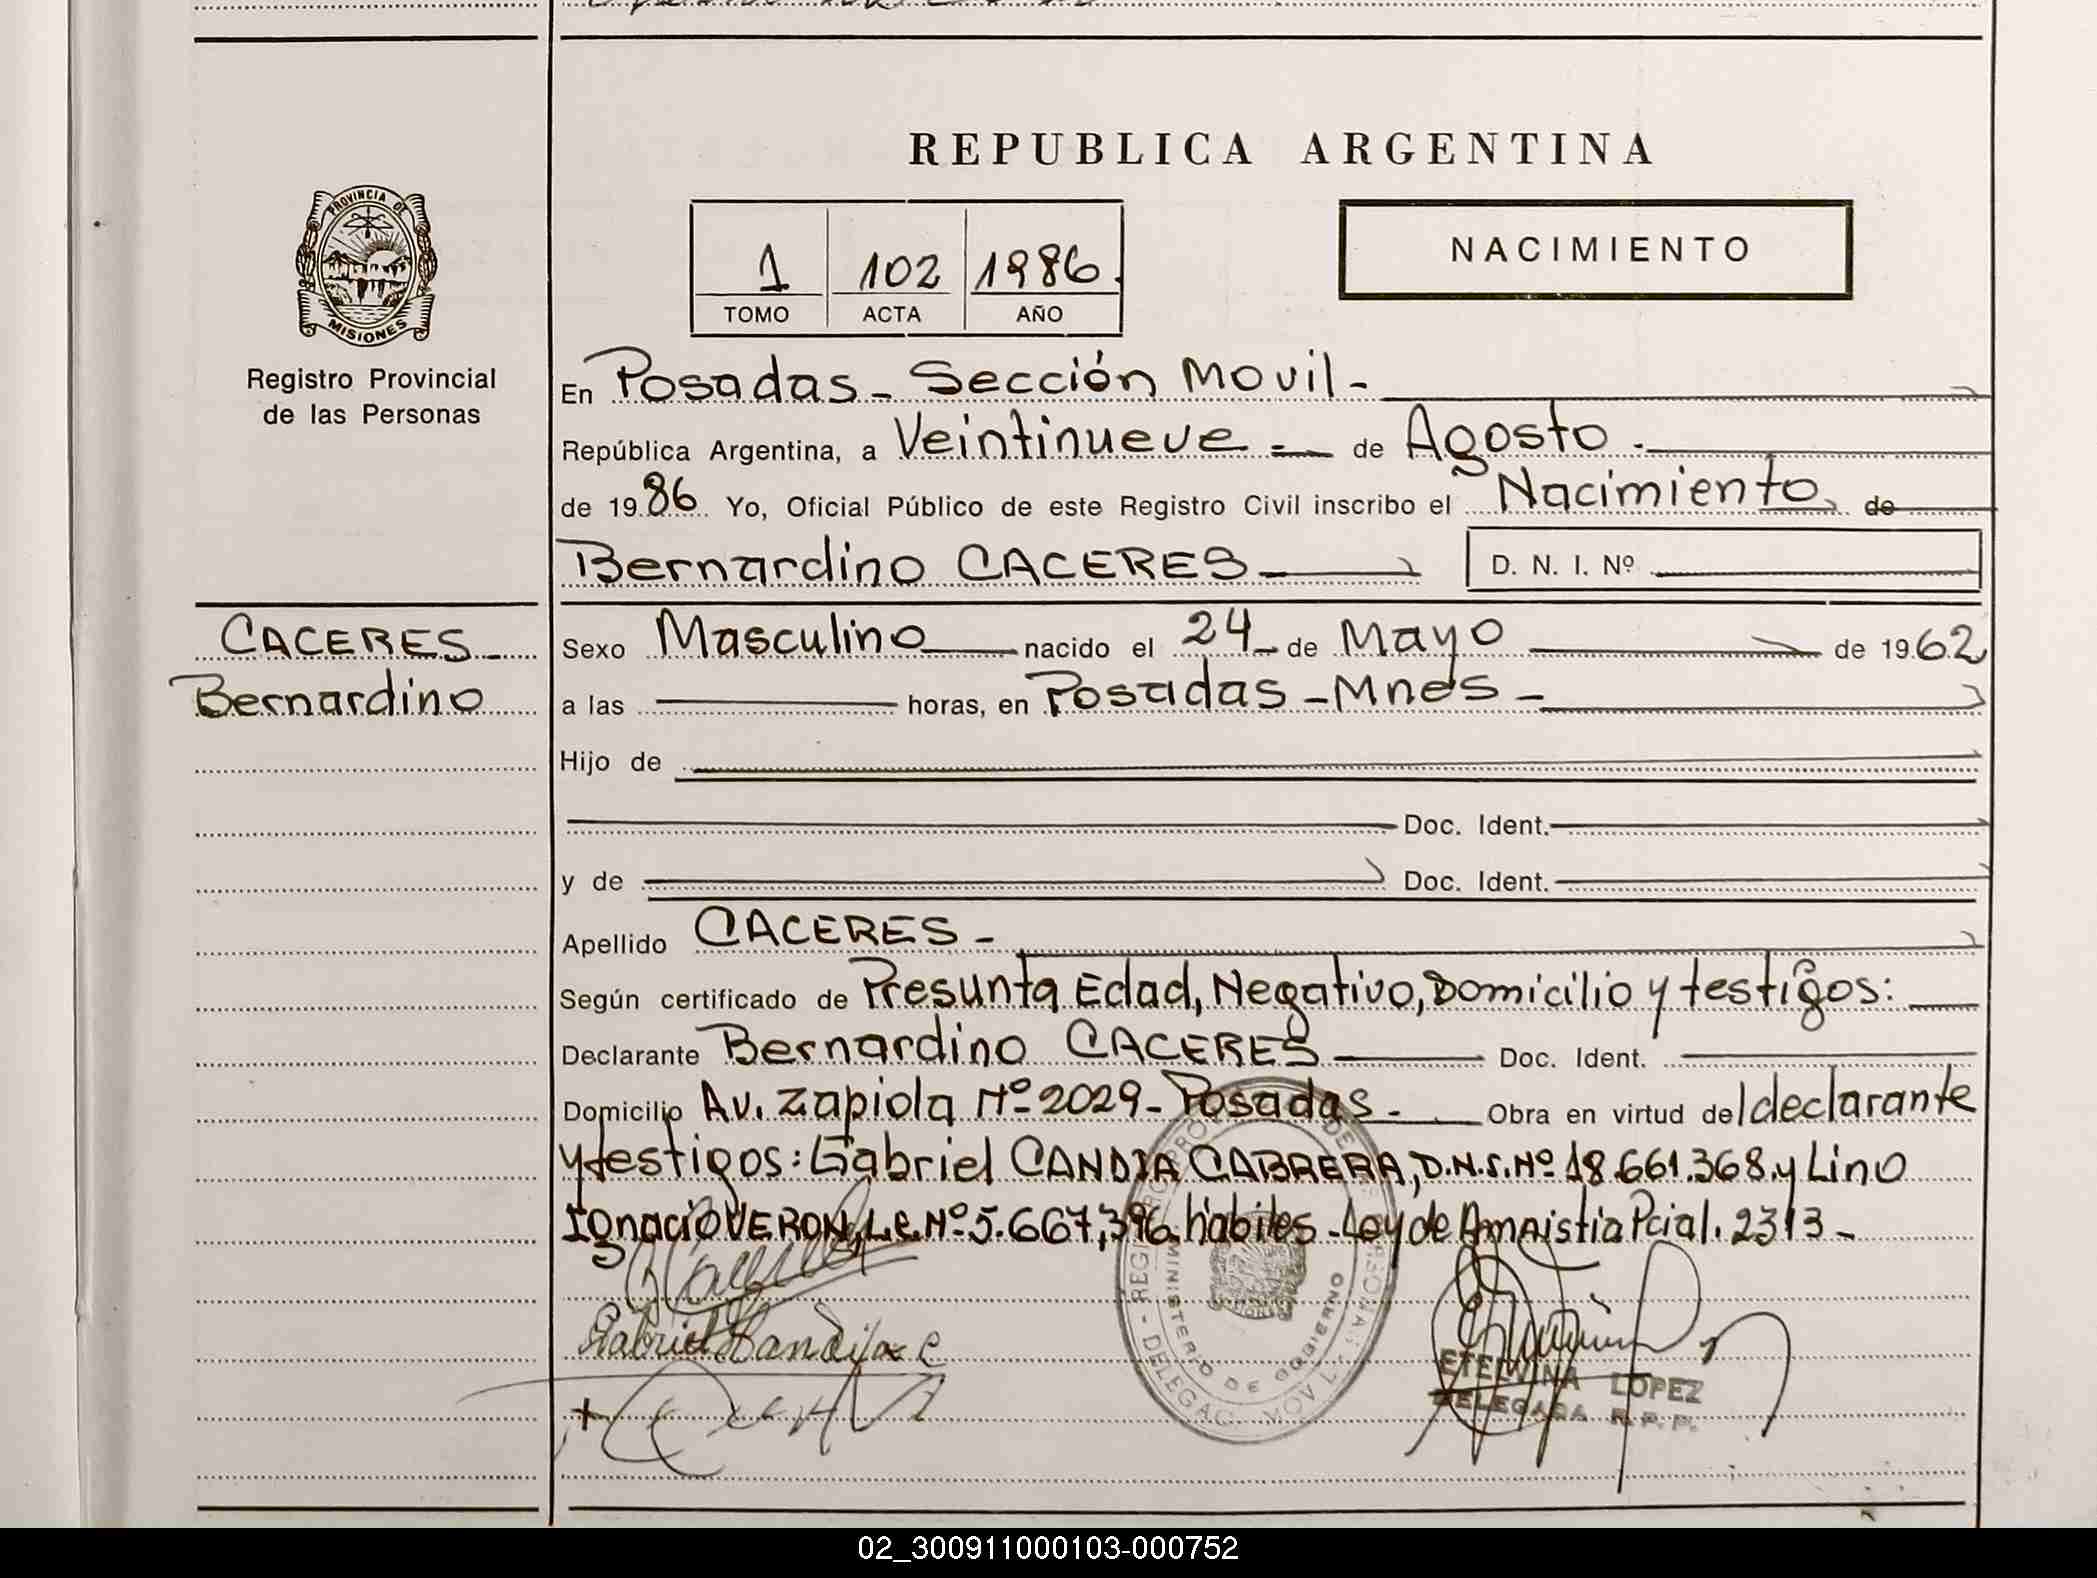 REPUBLICA ARGENTINA
PROVINCIA DE
MISIONES
Registro Provincial
de las Personas
1 102 1986.
TOMO ACTA AÑO
NACIMIENTO
En Posadas - Sección Movil -
República Argentina, a Veintinueve = de Agosto.
de 1986 Yo, Oficial Público de este Registro Civil inscribo el Nacimiento de
Bernardino CACERES D. N. I. Nº
CACERES
Bernardino
Sexo Masculino nacido el 24 de Mayo de 1962
a las horas, en Posadas - Mnes -
Hijo de
Doc. Ident.
y de Doc. Ident.
Apellido CACERES -
Según certificado de Presunta Edad, Negativo, Domicilio y testigos:
Declarante Bernardino CACERES Doc. Ident.
Domicilio Av. Zapiola Nº 2029 - Posadas - Obra en virtud del declarante
y testigos: Gabriel CANDIA CABRERA, D.N.I. Nº 18.661.368 y Lino
Ignacio VERON, L.E. Nº 5.667,396 hábiles - Ley de Amnistia Pcial. 2313 -
Gabriel Candia C
MINISTERIO DE GOBIERNO
DELEGAC. MOVIL
ETELVINA LOPEZ
DELEGADA R.P.P.
02_300911000103-000752